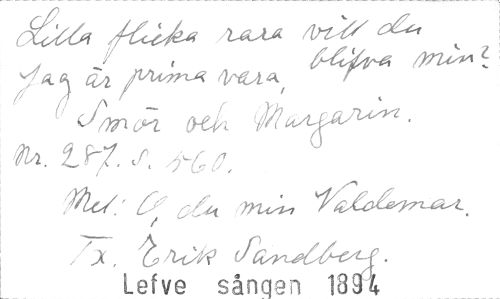 Lilla flicka rara vill du
blifva min?
Jag är prima vara,
Smör och Margarin.
Nr. 287. S. 560.
Mel: O, du min Valdemar.
Tx. Erik Sandberg.
Lefve sången 1894